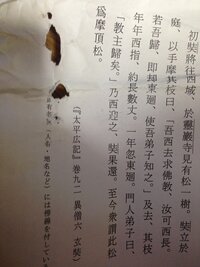 初奘將往西域、於靈巖寺見有松一樹。奘立於
庭、以手摩其枝曰、「吾西去求佛教、汝可西長。
若吾歸、即却東迴、使吾弟子知之。」及去、其枝
年年西指、約長數丈。一年忽東迴。門人弟子曰、
「教主歸矣。」乃西迎之、奘果還。至今衆謂此松
爲摩頂松。
(『太平広記』巻九二 異僧六 玄奘)
(人名・地名など)には傍線を付している